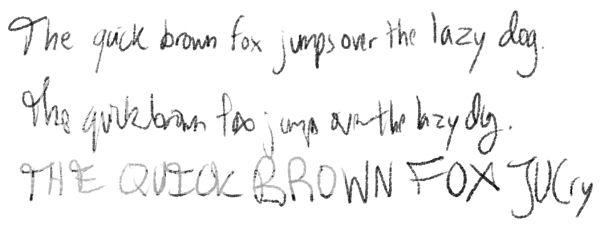 The quick brown fox jumps over the lazy dog.
The quick brown fox jumps over the lazy dog.
THE QUICK BROWN FOX JUCry